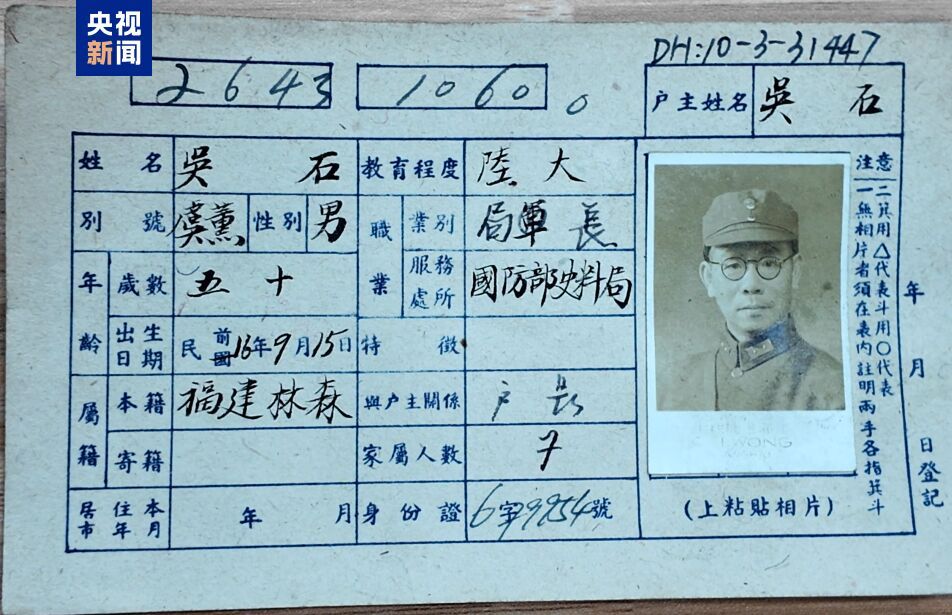 央视
新闻
DH:10-3-31447
2643
1060
户主姓名 吳石
姓名 吳石 教育程度 陸大
別號 虞薰 性別 男 職業 業別 局軍長
年齡 歲數 五十 服務處所 國防部史料局
出生日期 民前國16年9月15日 特徵
屬籍 本籍 福建林森 與户主關係 户長
寄籍 家屬人數 7
居住本市年月 年 月 身份證 6字9954號
I.WONG
(上粘貼相片)
注意
一無相片者須在表內註明兩手各指箕斗
二箕用△代表斗用○代表
年月日登記